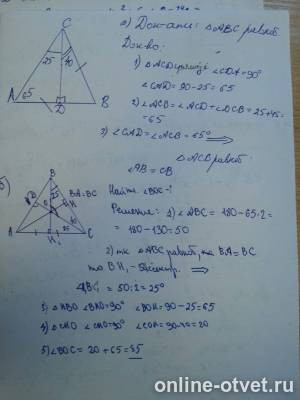 C
25 40
A 65 D B
а) Док-ать: △ABC равноб.
Док-во:
1) △ACD прямоуг ∠CDA=90°
∠CAD=90-25=65
2) ∠ACB=∠ACD+∠DCB=25+40=
=65
3) ∠CAD=∠ACB=65° ⟹
△ACB равноб.
AB=CB
б)
B
25
BA=BC
H
O
A H₁ C
Найти ∠BOC-?
Решение: 1) ∠ABC=180-65·2=
=180-130=50
2) тк △ABC равноб, то BA=BC
то BH₁- биссектр. ⟹
=50:2=25°
3) △HBO ∠BHO=90° ∠BOH=90-25=65
4) △CHO ∠CHO=90° ∠COH=90-70=20
5) ∠BOC=20+65=85
online-otvet.ru